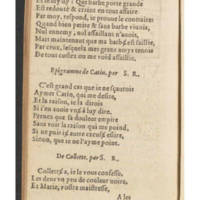 barbe porte grande
Est redouté & craint en tout affaire
Par moy, respond, ie prouue le contraire:
Quand bien petite & sans barbe viuois,
Nul ennemy, nul assaillant n'auois,
Mais maintenant que ma barbe est saillie,
Par creux, lesquels mes grans noyes
De tout costez on me void assaillie.
Epigramme de Catin, par S. R.
C'est grand cas que ie ne sçaurois
Aymer Catin, qui me desire,
Et la raison, ie la dirois
Si i'en auoie veu à luy dire,
Pensez que sa douleur empire
Sans voir la raison qui me poind,
Si ne puis ie autre excuse dire,
Sinon, que ie ne l'ayme point.
De Collette, par S. R.
Collette, ie le vous confesse,
Les deux vn peu de couleur noire,
Et Marie, vostre maistresse,
A les